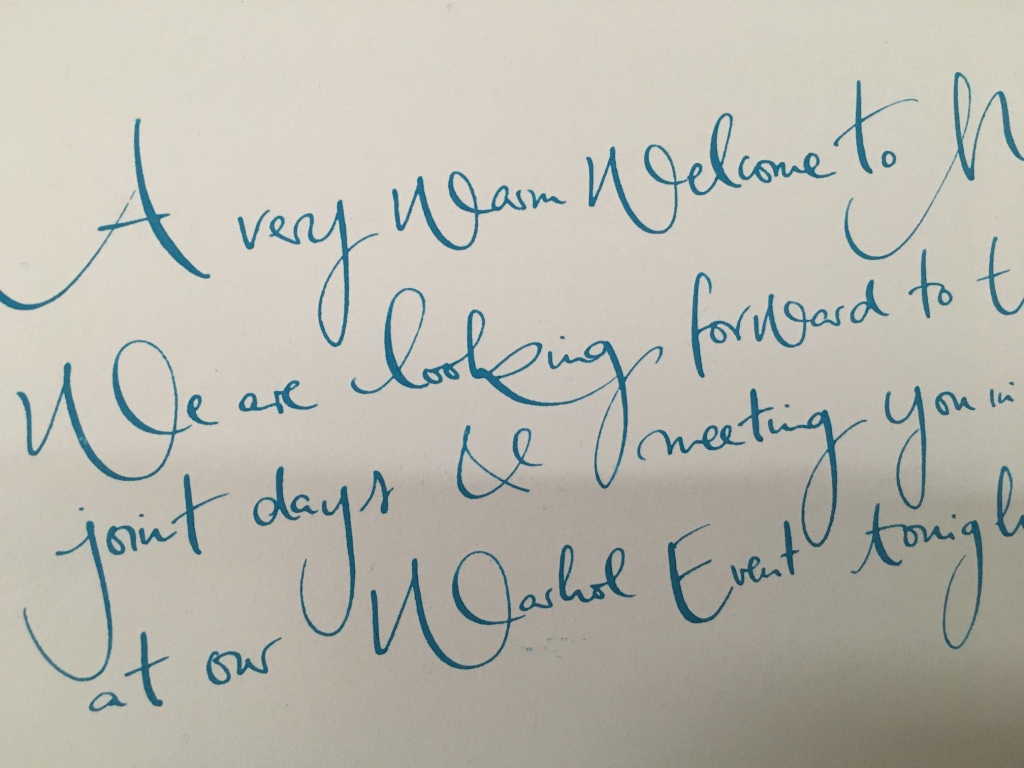 A very warm Welcome to
We are looking forward to
joint days & meeting you in
at our Warhol Event